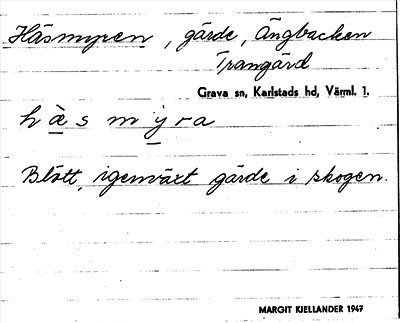 Häsmyren, gärde, Ängbacken
Trangärd
Grava sn, Karlstads hd, Värml. l.
hà̱s mỳ̱ra
Blött, igenväxt gärde i skogen.
MARGIT KJELLANDER 1947